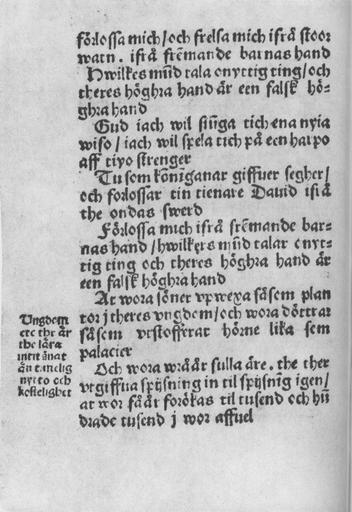 förlossa mich/och frelsa mich ifrå stoor
watn. ifrå frēmande barnas hand
Hwilkes mūd tala onyttig ting/och
theres höghra hand är een falsk hö-
ghra hand
Gud iach wil siūga tich ena nyia
wiso/iach wil spela tich på een harpo
aff tiyo strenger
Tu som königanar giffuer segher/
och forlossar tin tienare Dauid ifrå
the ondas swerd
Förlossa mich ifrå frēmande bar-
nas hand/hwilkers mūd talar onyt-
tig ting och theres höghra hand är
een falsk höghra hand
At wora söner vpwexa såsem plan
tor j theres vngdom/och wora döttrar
såsem vtstofferat hörne lika sem
palacier
Och wora wråår fulla äre. the ther
vtgiffua spijsning in til spijsnīg igen/
at wor fåår forökas til tusend och hū
drade tusend j wor affuel
Ungdem
ete the är
the lära
intit ānat
än t melig
nytto och
kestelighet